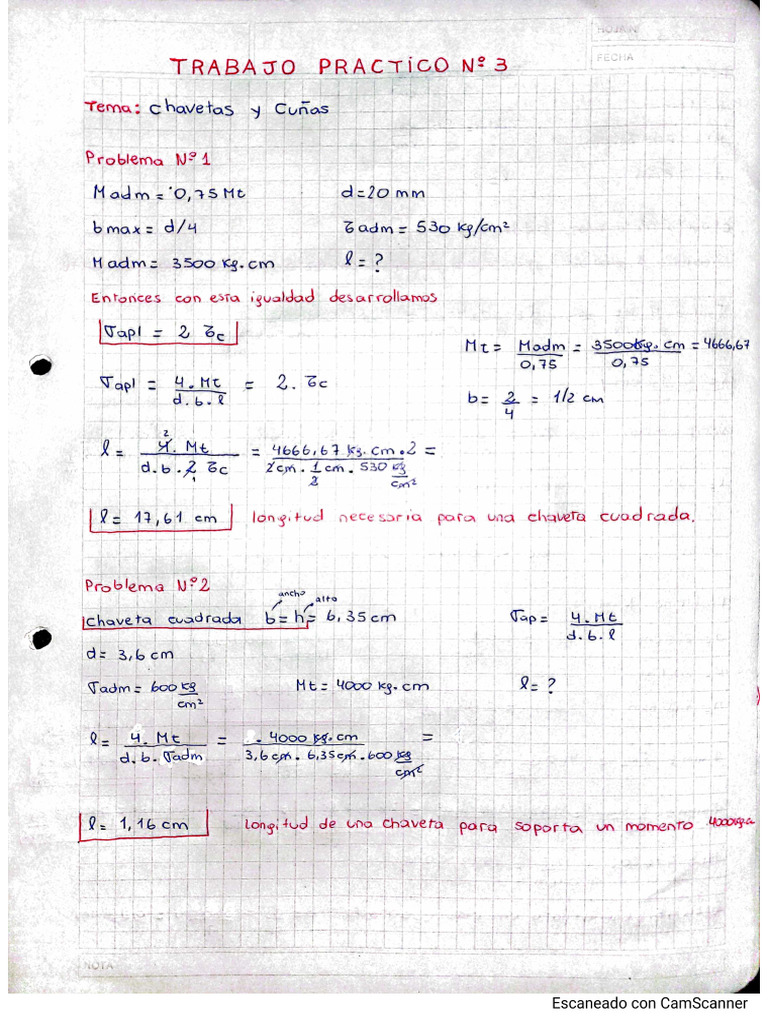 HOJA Nº
FECHA
TRABAJO PRACTICO Nº 3
Tema: Chavetas y Cuñas
Problema Nº 1
Madm = 0,75 Mt d = 20 mm
b max = d/4 τadm = 530 kg/cm²
Madm = 3500 kg.cm l = ?
Entonces con esta igualdad desarrollamos
σapl = 2 τc
Mt = Madm / 0,75 = 3500 kg.cm / 0,75 = 4666,67
σapl = 4. Mt / d. b. l = 2. τc
b = 2/4 = 1/2 cm
l = 4. Mt / d. b. 2 τc = 4666,67 kg. cm . 2 / 2cm . 1/2 cm. 530 kg/cm² =
l = 17,61 cm longitud necesaria para una chaveta cuadrada.
Problema Nº 2
ancho alto
Chaveta cuadrada b = h = 6,35 cm σap = 4. Mt / d. b. l
d = 3,6 cm
σadm = 600 kg/cm² Mt = 4000 kg. cm l = ?
l = 4. Mt / d. b. σadm = . 4000 kg. cm / 3,6 cm . 6,35 cm . 600 kg/cm² =
l = 1,16 cm longitud de una chaveta para soporta un momento 4000
NOTA
Escaneado con CamScanner